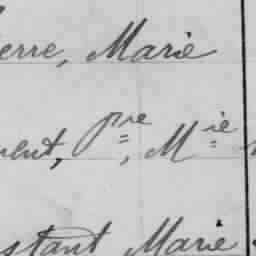 erre, Marie
ment, Pre, Mie
stant Marie